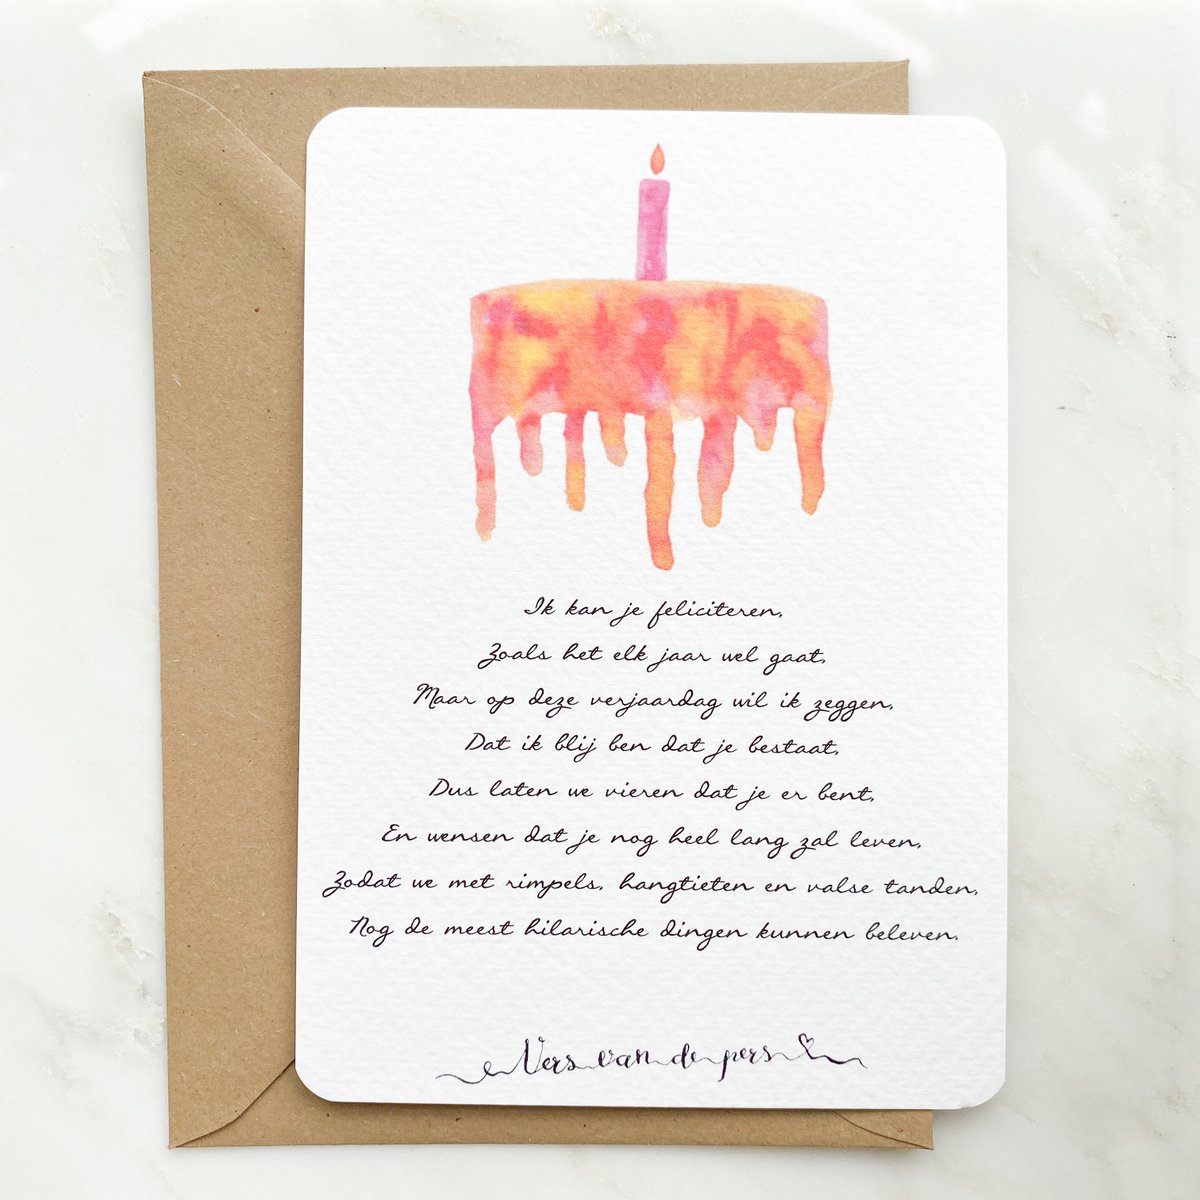 Ik kan je feliciteren,
Zoals het elk jaar wel gaat,
Maar op deze verjaardag wil ik zeggen,
Dat ik blij ben dat je bestaat,
Dus laten we vieren dat je er bent,
En wensen dat je nog heel lang zal leven,
Zodat we met rimpels, hangtieten en valse tanden,
Nog de meest hilarische dingen kunnen beleven.
Vers van de pers